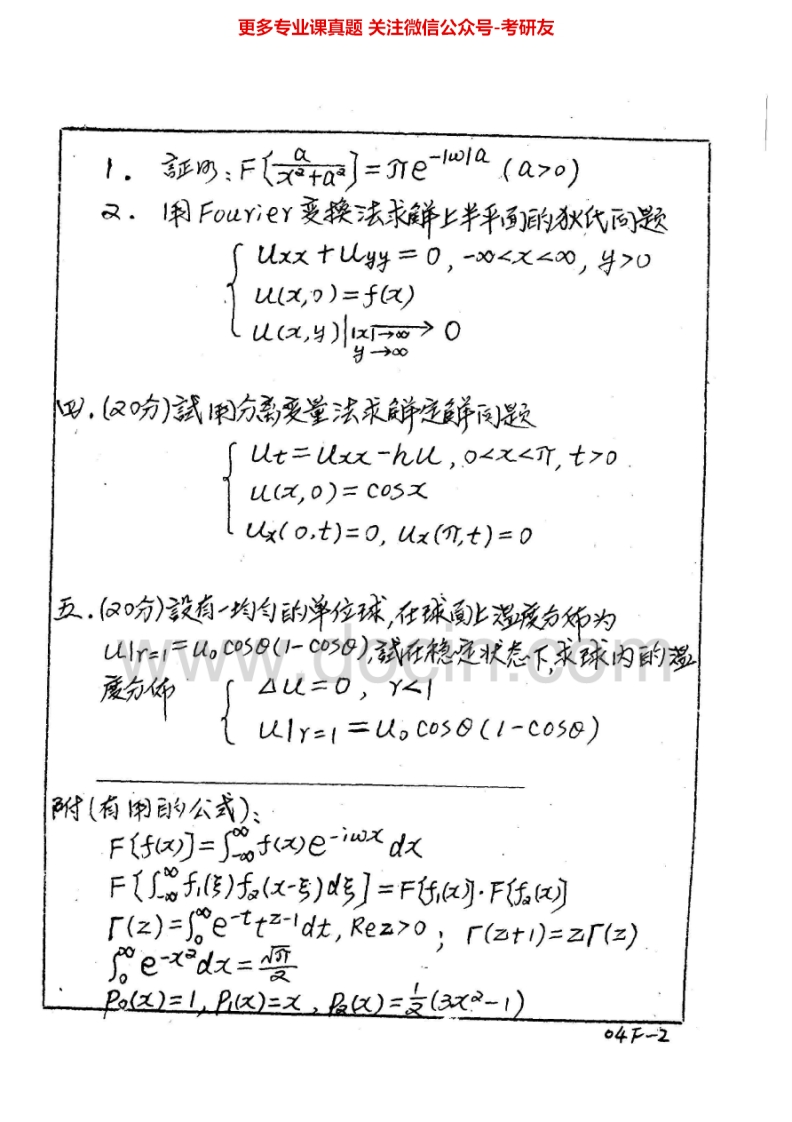 更多专业课真题 关注微信公众号-考研友
1. 証明: F{a/(x²+a²)} = πe^{-|ω|a} (a>0)
2. 用Fourier变换法求解上半平面的狄氏问题
{ Uxx + Uyy = 0, -∞<x<∞, y>0
u(x,0) = f(x)
u(x,y)||x|→∞ y→∞ → 0
四. (20分) 試用分离变量法求解定解问题
{ Ut = Uxx - hu, 0<x<π, t>0
u(x,0) = cosx
Ux(0,t) = 0, Ux(π,t) = 0
五. (20分) 設有一均匀的单位球, 在球面上温度分佈为
u|r=1 = u₀cosθ(1-cosθ), 試在稳定状态下, 求球内的温
度分佈 { Δu = 0, r<1
u|r=1 = u₀cosθ(1-cosθ)
www.docin.com
附(有用的公式):
F{f(x)} = ∫_{-∞}^{∞} f(x)e^{-iωx}dx
F{∫_{-∞}^{∞} f₁(ξ)f₂(x-ξ)dξ} = F{f₁(x)}·F{f₂(x)}
Γ(z) = ∫₀^∞ e^{-t}t^{z-1}dt, Rez>0; Γ(z+1) = zΓ(z)
∫₀^∞ e^{-x²}dx = √π/2
P₀(x) = 1, P₁(x) = x, P₂(x) = ½(3x²-1)
04F-2